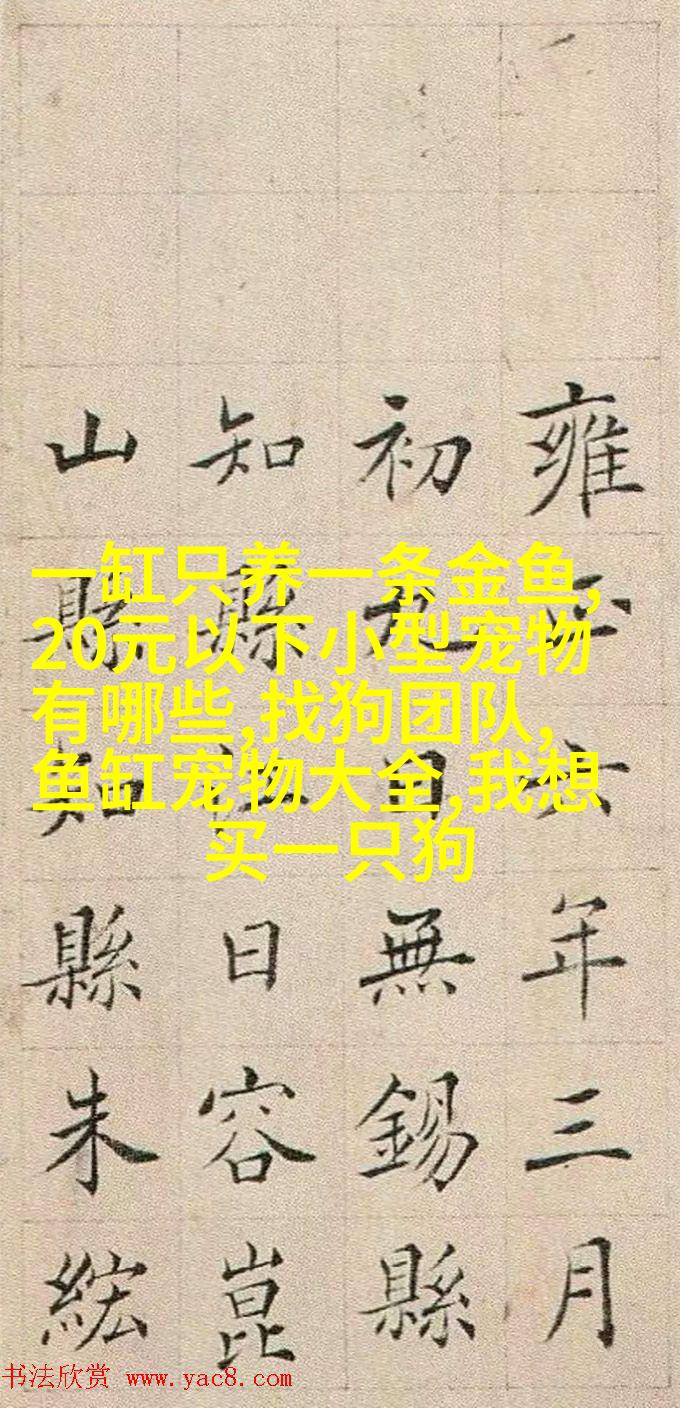 雍正六年三月
初九日無錫縣
知縣江日容崑
山縣知縣朱綋
一缸只养一条金鱼,
20元以下小型宠物
有哪些,找狗团队,
鱼缸宠物大全,我想
买一只狗
书法欣赏 www.yac8.com